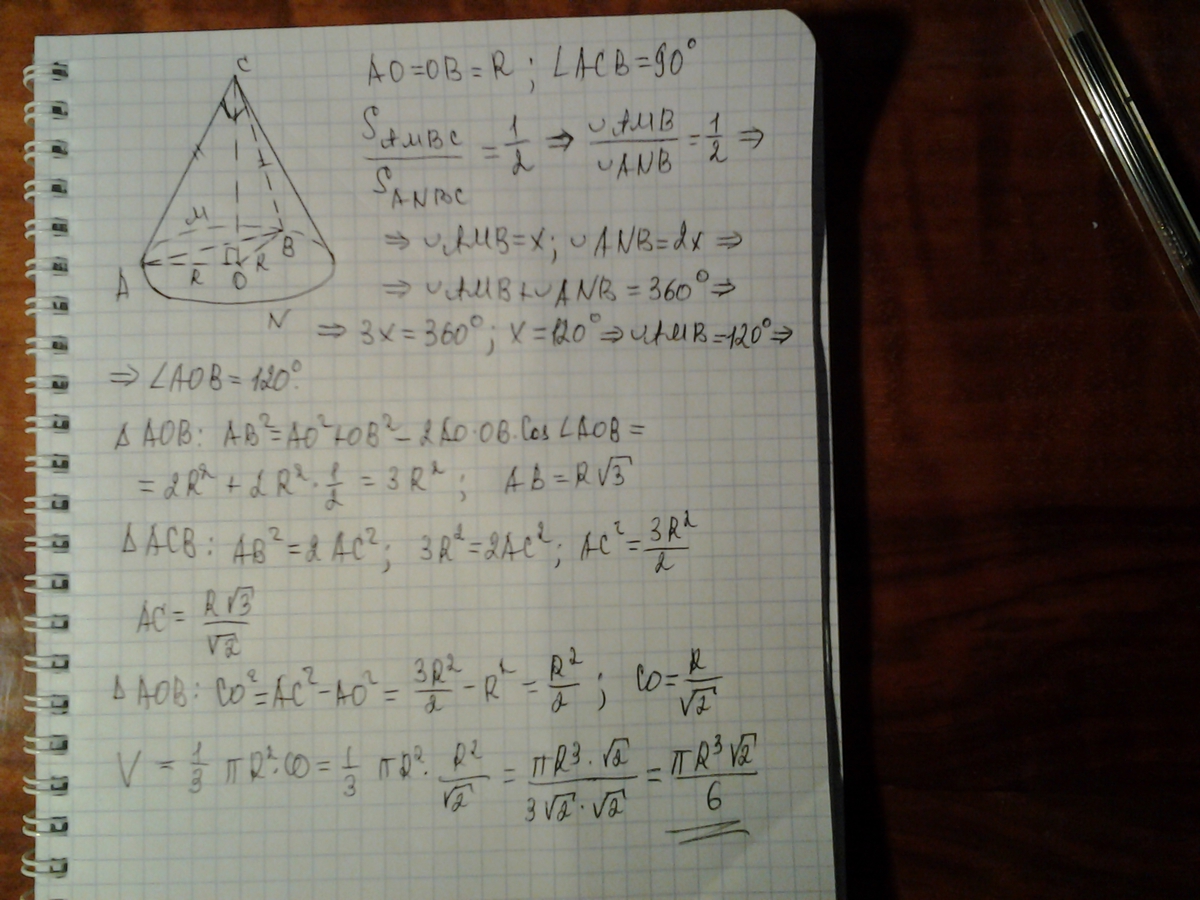 C
M
A
R
O
R
B
N
AO=OB=R; ∠ACB=90°
S_AMBC / S_ANBC = 1/2 ⇒ ∪AMB / ∪ANB = 1/2 ⇒
⇒ ∪AMB=x; ∪ANB=2x ⇒
⇒ ∪AMB+∪ANB=360° ⇒
⇒ 3x=360°; x=120° ⇒ ∪AMB=120° ⇒
⇒ ∠AOB=120°.
Δ AOB: AB²=AO²+OB²-2AO·OB·Cos∠AOB=
=2R²+2R²·1/2=3R²; AB=R√3
Δ ACB: AB²=2AC²; 3R²=2AC²; AC²=3R²/2
AC=R√3/√2
Δ AOB: CO²=AC²-AO²=3R²/2-R²=R²/2; CO=R/√2
V=1/3 πR²·CO=1/3 πR²·R²/√2=πR³·√2/3√2·√2=πR³√2/6